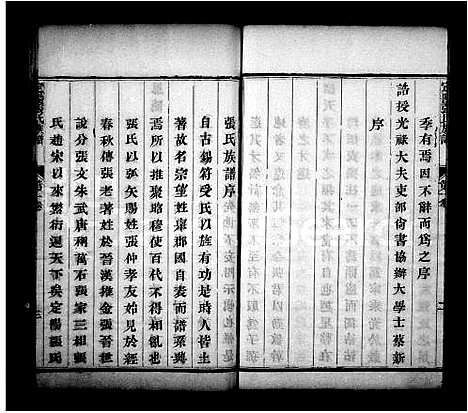 季有焉因不辭而爲之序
誥授光祿大夫吏部尙書協辦大學士蔡新
序
張氏族譜序
自古錫符受氏以旌有功是時人皆土
著故名宗望姓舉郡國自表而譜系興
焉所以推聚昭穆使百代不得相亂也
張氏以弧矢賜姓張仲孝友始見於經
春秋傳張老著於晉漢推金張晉世
說分張文朱武唐稱萬石張家三相張
氏趙宋以來蕃衍天下矣定陽張氏